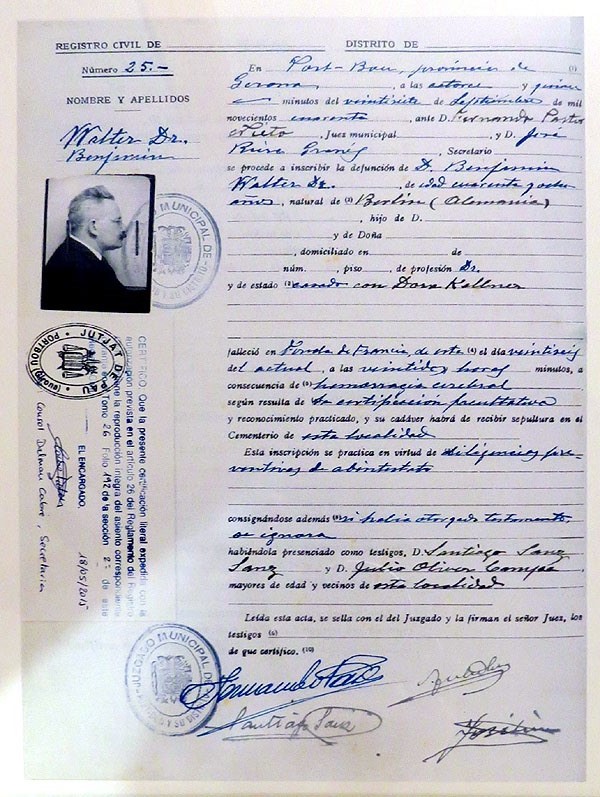 REGISTRO CIVIL DE
DISTRITO DE
Número 25.-
NOMBRE Y APELLIDOS
Walter Dr.
Benjimin
En Port-Bou, provincia de (1)
Gerona, a las catorce y quince
minutos del veintisiete de Septiembre de mil
novecientos cuarenta, ante D. Fernando Pastor
Nieto, Juez municipal, y D. José
, Secretario
se procede a inscribir la defunción de D. Benjamin
Walter Dr., de edad cuarenta y ocho
años, natural de (2) Berlin (Alemania)
, hijo de D.
y de Doña
, domiciliado en de
núm. , piso , de profesión Dr.
y de estado (3) casado con Dora Kellner
falleció en Fonda de Francia, de esta (4) el día veintiseis
del actual, a las veintidos horas minutos, a
consecuencia de (5) hemorragia cerebral
según resulta de la certificación facultativa
y reconocimiento practicado, y su cadáver habrá de recibir sepultura en el
Cementerio de esta localidad
Esta inscripción se practica en virtud de diligencias pre-
ventivas de abintestato
consignándose además (8) si había otorgado testamento,
se ignora
habiéndola presenciado como testigos, D. Santiago Sanz
Sanz y D. Julio Oliver
mayores de edad y vecinos de esta localidad
Leída esta acta, se sella con el del Juzgado y la firman el señor Juez, los
testigos (6)
de que certifico. (10)
Santiago Sanz
JUZGADO MUNICIPAL DE
Y SU DISTRITO
JUTJAT DE PAU
PORTBOU (Girona)
CERTIFICO: Que la presente certificación literal expedida con la
autorización prevista en el artículo 26 del Reglamento del Registro
Civil, contiene la reproducción íntegra del asiento correspondiente
obrante en Tomo 26 Folio 192 de la sección 2ª de este
EL ENCARGADO,
18/05/2015
Dalmau Cabré, Secretaria